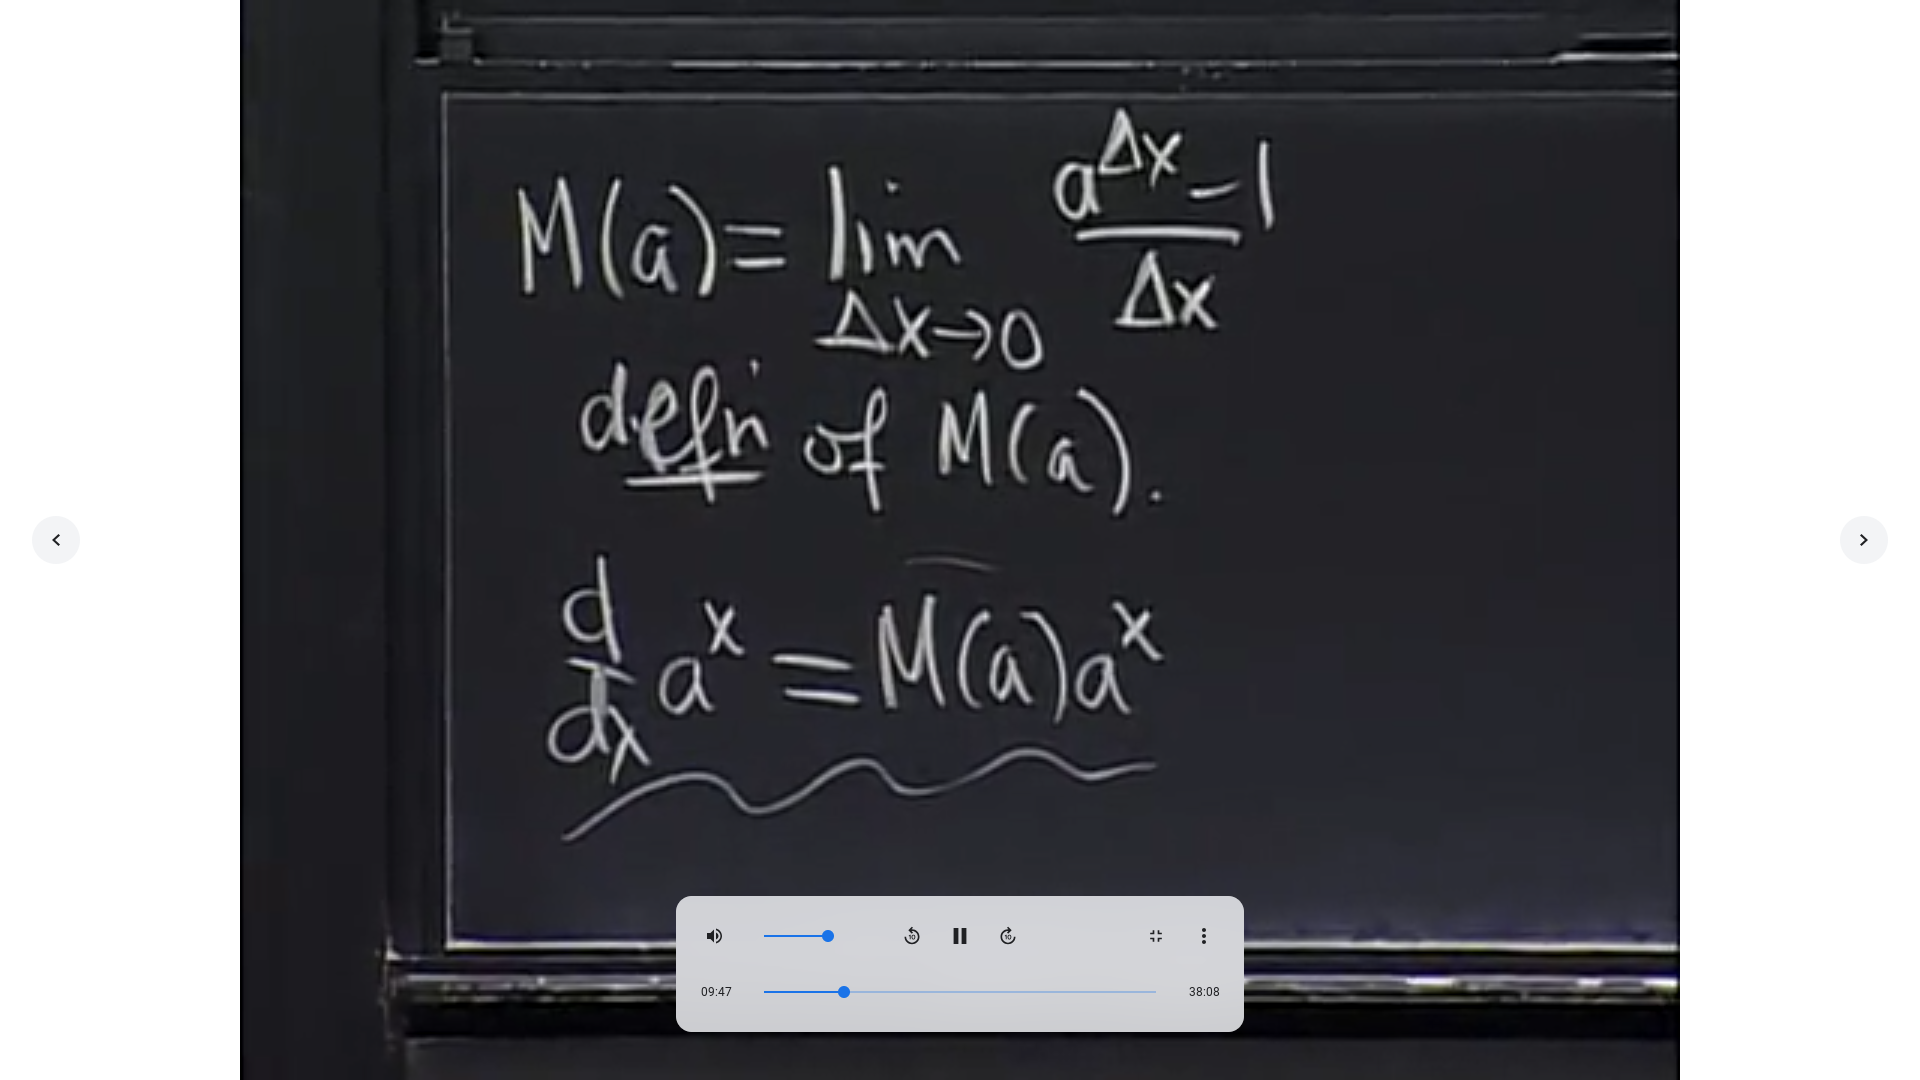 M(a) = lim Δx→0 (a^Δx − 1)/Δx
defn of M(a).
d/dx a^x = M(a)a^x
10 10
09:47 38:08